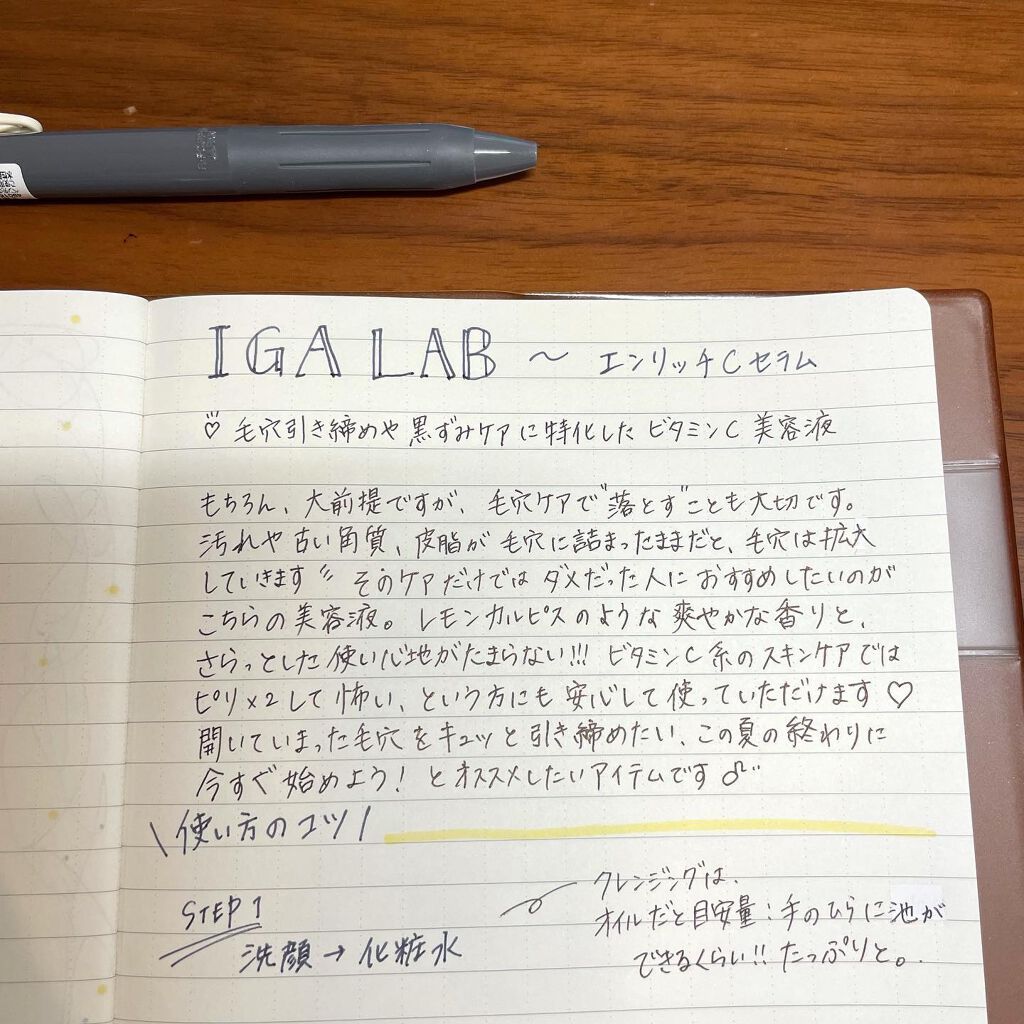 IGA LAB ～ エンリッチCセラム
♡ 毛穴引き締めや黒ずみケアに特化したビタミンC 美容液
もちろん、大前提ですが、毛穴ケアで"落とす"ことも大切です。
汚れや古い角質、皮脂が毛穴に詰まったままだと、毛穴は拡大
していきます〃 そのケアだけではダメだった人におすすめしたいのが
こちらの美容液。レモンカルピスのような爽やかな香りと、
さらっとした使い心地がたまらない!!! ビタミンC系のスキンケアでは
ピリ×2して怖い、という方にも安心して使っていただけます♡
開いていまった毛穴をキュッと引き締めたい、この夏の終わりに
今すぐ始めよう！とオススメしたいアイテムです♫
\使い方のコツ/
STEP1
洗顔→化粧水
クレンジングは、
オイルだと目安量：手のひらに池が
できるくらい!! たっぷりと。